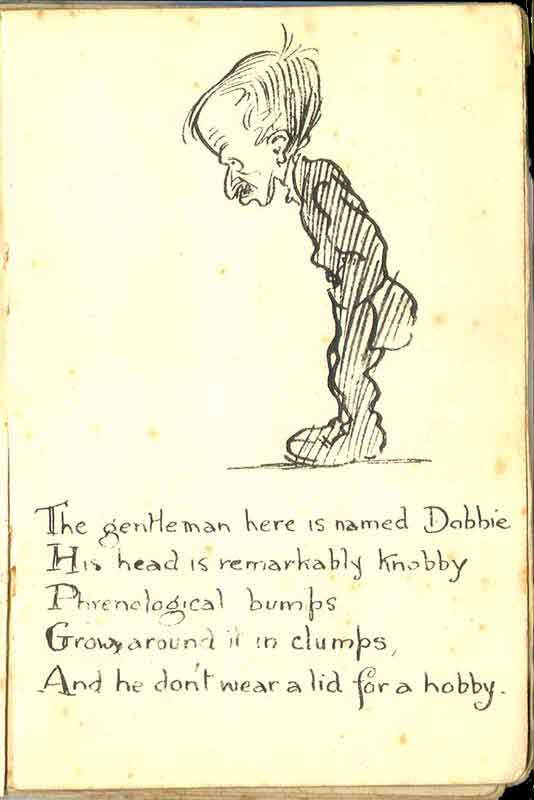 The gentleman here is named Dobbie
His head is remarkably knobby
Phrenological bumps
Grow around it in clumps,
And he don't wear a lid for a hobby.